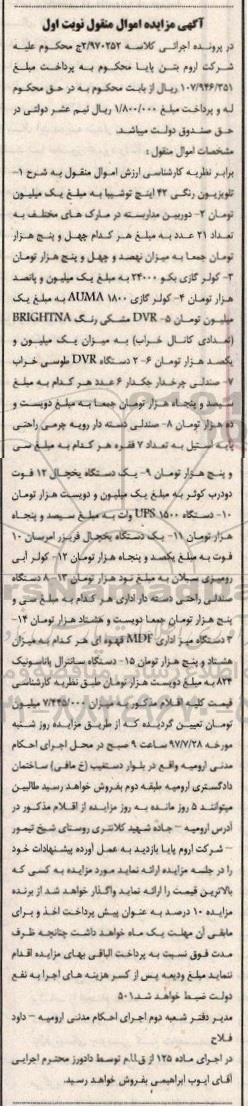 آگهی مزایده اموال منقول نوبت اول
در پرونده اجرائی کلاسه ۲/۹۷۰۲۵۲ج محکوم علیه
شرکت اروم بتن پایا محکوم به پرداخت مبلغ
۱۰۷/۹۴۶/۳۵۱ ریال از بابت محکوم به در حق محکوم
له و پرداخت مبلغ ۱/۸۰۰/۰۰۰ ریال نیم عشر دولتی در
حق صندوق دولت میباشد.
مشخصات اموال منقول:
برابر نظریه کارشناسی ارزش اموال منقول به شرح ۱-
تلویزیون رنگی ۴۲ اینچ توشیبا به مبلغ یک میلیون
تومان ۲- دوربین مداربسته در مارک های مختلف به
تعداد ۲۱ عدد به مبلغ هر کدام چهل و پنج هزار
تومان جمعا به میزان نهصد و چهل و پنج هزار تومان
۳- کولر گازی بکو ۲۴۰۰۰ به مبلغ یک میلیون و پانصد
هزار تومان ۴- کولر گازی AUMA ۱۸۰۰ به مبلغ یک
میلیون تومان ۵- DVR مشکی رنگ BRIGHTNA
(تعدادی کانال خراب) به میزان یک میلیون و
یکصد هزار تومان ۶- ۲ دستگاه DVR طوسی خراب
۷- صندلی چرخدار جکدار ۶ عدد هر کدام به مبلغ
سیصد و پنجاه هزار تومان جمعا به مبلغ دویست و
ده هزار تومان ۸- صندلی دسته دار رویه چرمی راحتی
پایه استیل به تعداد ۷ فقره هر کدام به مبلغ سی
و پنج هزار تومان ۹- یک دستگاه یخچال ۱۲ فوت
دودرب کولر به مبلغ یک میلیون و دویست هزار تومان
۱۰- دستگاه UPS ۱۵۰۰ وات به مبلغ سیصد و پنجاه
هزار تومان ۱۱- یک دستگاه یخچال فریزر امرسان ۱۰
فوت به مبلغ یکصد و پنجاه هزار تومان ۱۲- کولر آبی
رومیزی سبلان به مبلغ نود هزار تومان ۱۳- ۸ دستگاه
صندلی راحتی دسته دار اداری هر کدام به مبلغ سی و
پنج هزار تومان جمعا دویست و هشتاد هزار تومان ۱۴-
۳ دستگاه میز اداری MDF قهوه ای هر کدام به میزان
هشتاد و پنج هزار تومان ۱۵- دستگاه سانترال پاناسونیک
۸۲۴ به مبلغ دویست هزار تومان طبق نظریه کارشناسی
قیمت کلیه اقلام مذکور به میزان ۷/۴۴۵/۰۰۰ میلیون
تومان تعیین گردیده که از طریق مزایده روز شنبه
مورخه ۹۷/۷/۲۸ ساعت ۹ صبح در محل اجرای احکام
مدنی ارومیه واقع در بلوار دستغیب (خ مافی) ساختمان
دادگستری ارومیه طبقه دوم بفروش خواهد رسید طالبین
میتوانند ۵ روز مانده به روز مزایده از اقلام مذکور در
آدرس ارومیه – جاده شهید کلانتری روستای شیخ تیمور
– شرکت اروم پایا بازدید به عمل آورده پیشنهادات خود
را در جلسه مزایده ارائه نماید مورد مزایده به کسی که
بالاترین قیمت را ارائه نماید واگذار خواهد شد از برنده
مزایده ۱۰ درصد به عنوان پیش پرداخت اخذ و برای
مابقی آن مهلت یک ماه خواهد داشت چنانچه ظرف
مدت فوق نسبت به پرداخت الباقی بهای مزایده اقدام
ننماید مبلغ ودیعه پس از کسر هزینه های اجرا به نفع
دولت ضبط خواهد شد.۵۰۱
مدیر دفتر شعبه دوم اجرای احکام مدنی ارومیه – داود
فلاح
در اجرای ماده ۱۲۵ از ق.ا.م توسط دادورز محترم اجرایی
آقای ایوب ابراهیمی بفروش خواهد رسید.